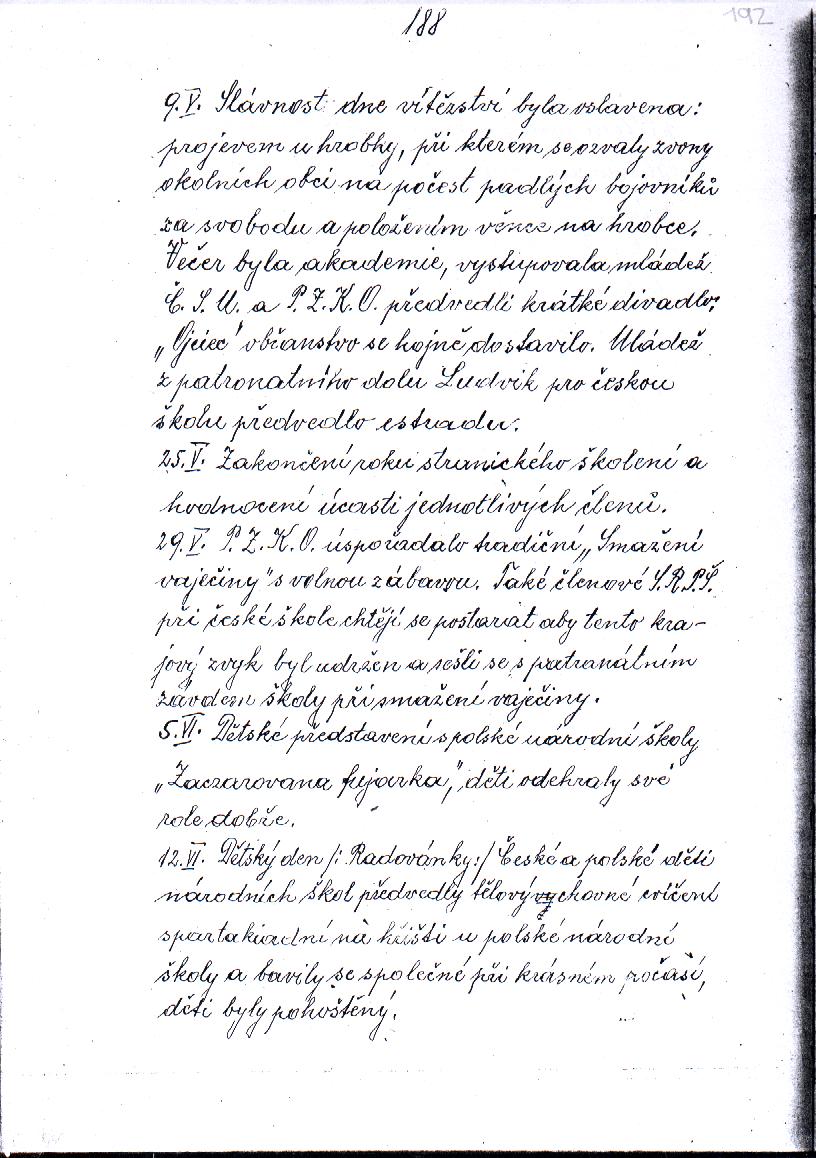 188
192
9.V. Slávnost dne vítězství byla oslavena:
projevem u hrobky, při kterém se ozvaly zvony
okolních obcí na počest padlých bojovníků
za svobodu a položením věnce na hrobce.
Večer byla akademie, vystupovala mládež
Č. S. U. a P. Z. K. O. předvedli krátké divadlo:
„Ojciec" občanstvo se hojně dostavilo. Mládež
z patronatního dolu Ludvik pro českou
školu předvedlo estradu.
25.V. Zakončení roku stranického školení a
hodnocení účasti jednotlivých členů.
29.V. P. Z. K. O. uspořadalo tradiční „Smažení
vaječiny" s volnou zábavou. Také členové S.R.P.Š.
při české škole chtějí se postarat aby tento kra-
jový zvyk byl udržen a sešli se s patranátním
závodem školy při smažení vaječiny.
5.VI. Dětské představení spolské národní školy
„Zaczarovana fujarka", děti odehraly své
role dobře.
12.VI. Dětský den /: Radovánky:/ České a polské děti
národních škol předvedly tělovývychovné cvičení
spartakiadní na hřišti u polské národní
školy a bavily se společné při krásném počasí,
děti byly pohoštěný.